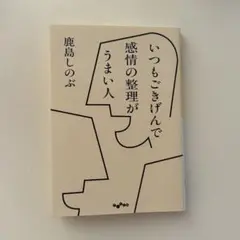 いつもごきげんで
感情の整理が
うまい人
鹿島しのぶ